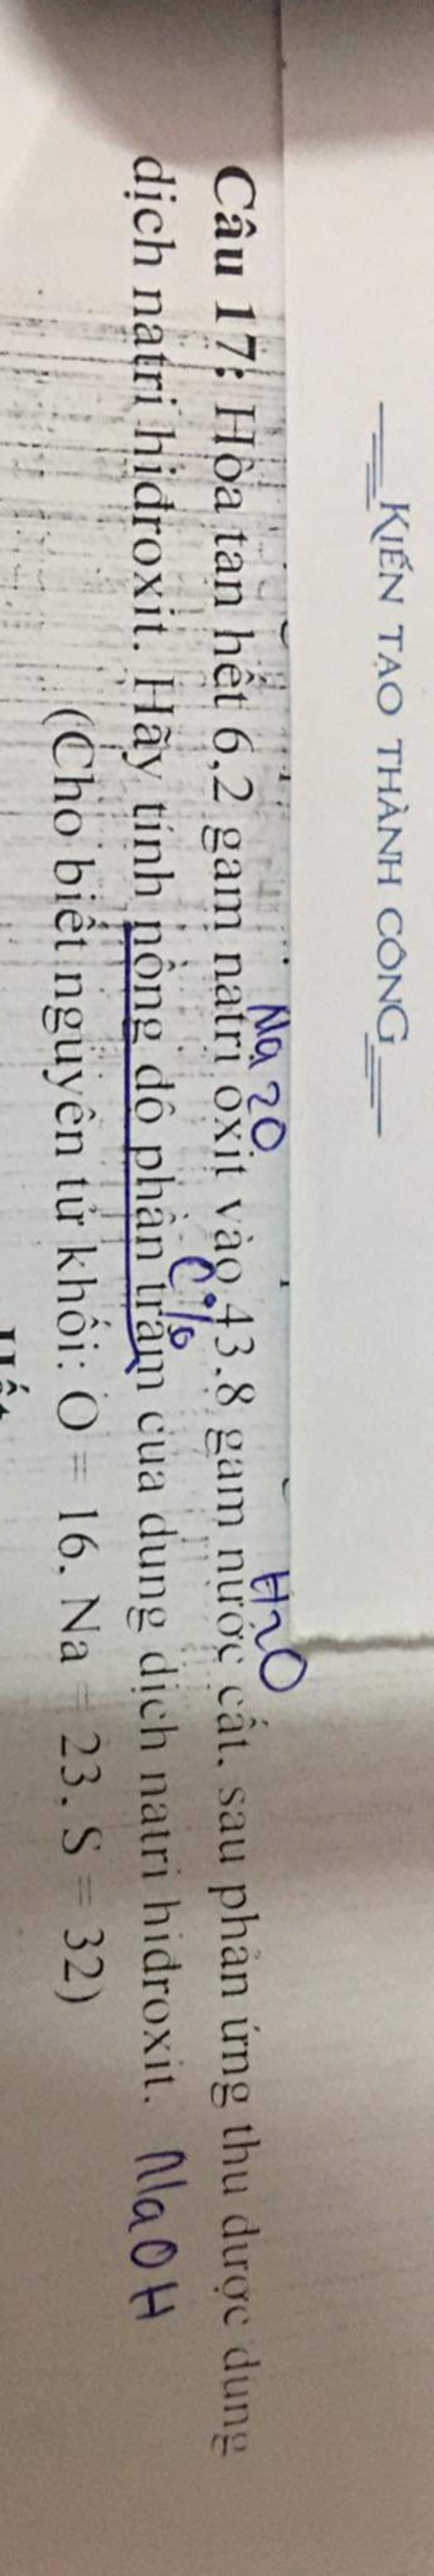 KIẾN TẠO THÀNH CÔNG
Na2O H2O
Câu 17: Hòa tan hết 6,2 gam natri oxit vào 43,8 gam nước cất, sau phản ứng thu được dung
C%
dịch natri hiđroxit. Hãy tính nồng độ phần trăm của dung dịch natri hiđroxit. NaOH
(Cho biết nguyên tử khối: O = 16, Na = 23, S = 32)